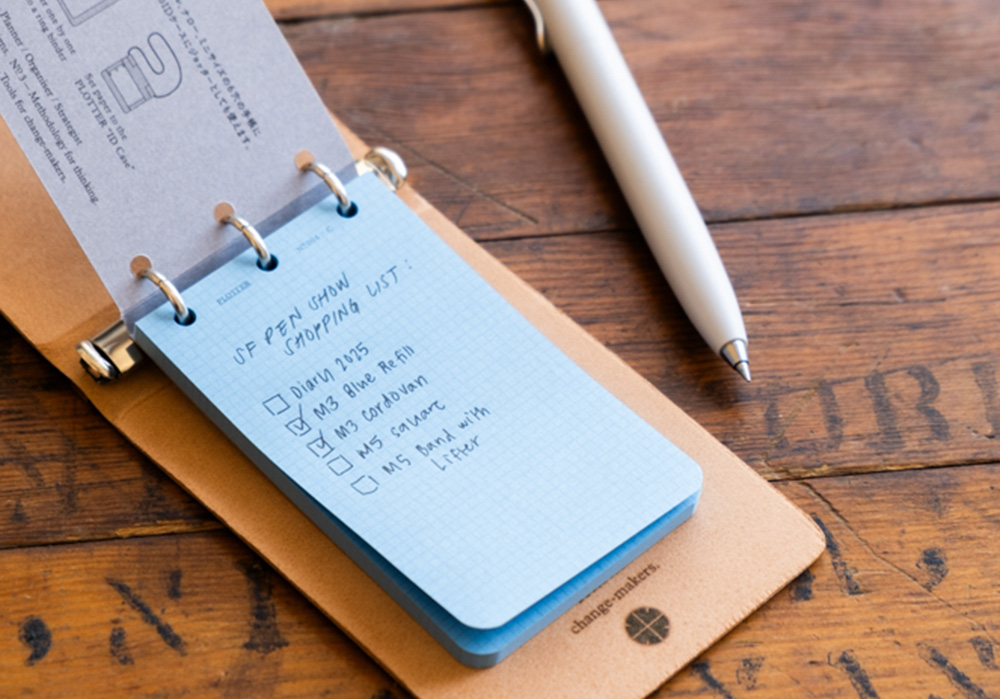 er one by one
o a ring binder
Set paper to the
PLOTTER "ID Case"
Planner / Organiser / Strategist
Nº 3 – Methodology for thinking
Tools for change-makers.
PLOTTER
SF PEN SHOW
SHOPPING LIST:
Diary 2025
M3 Blue Refill
M3 cordovan
M5 square
M5 Band with
Lifter
change-makers.